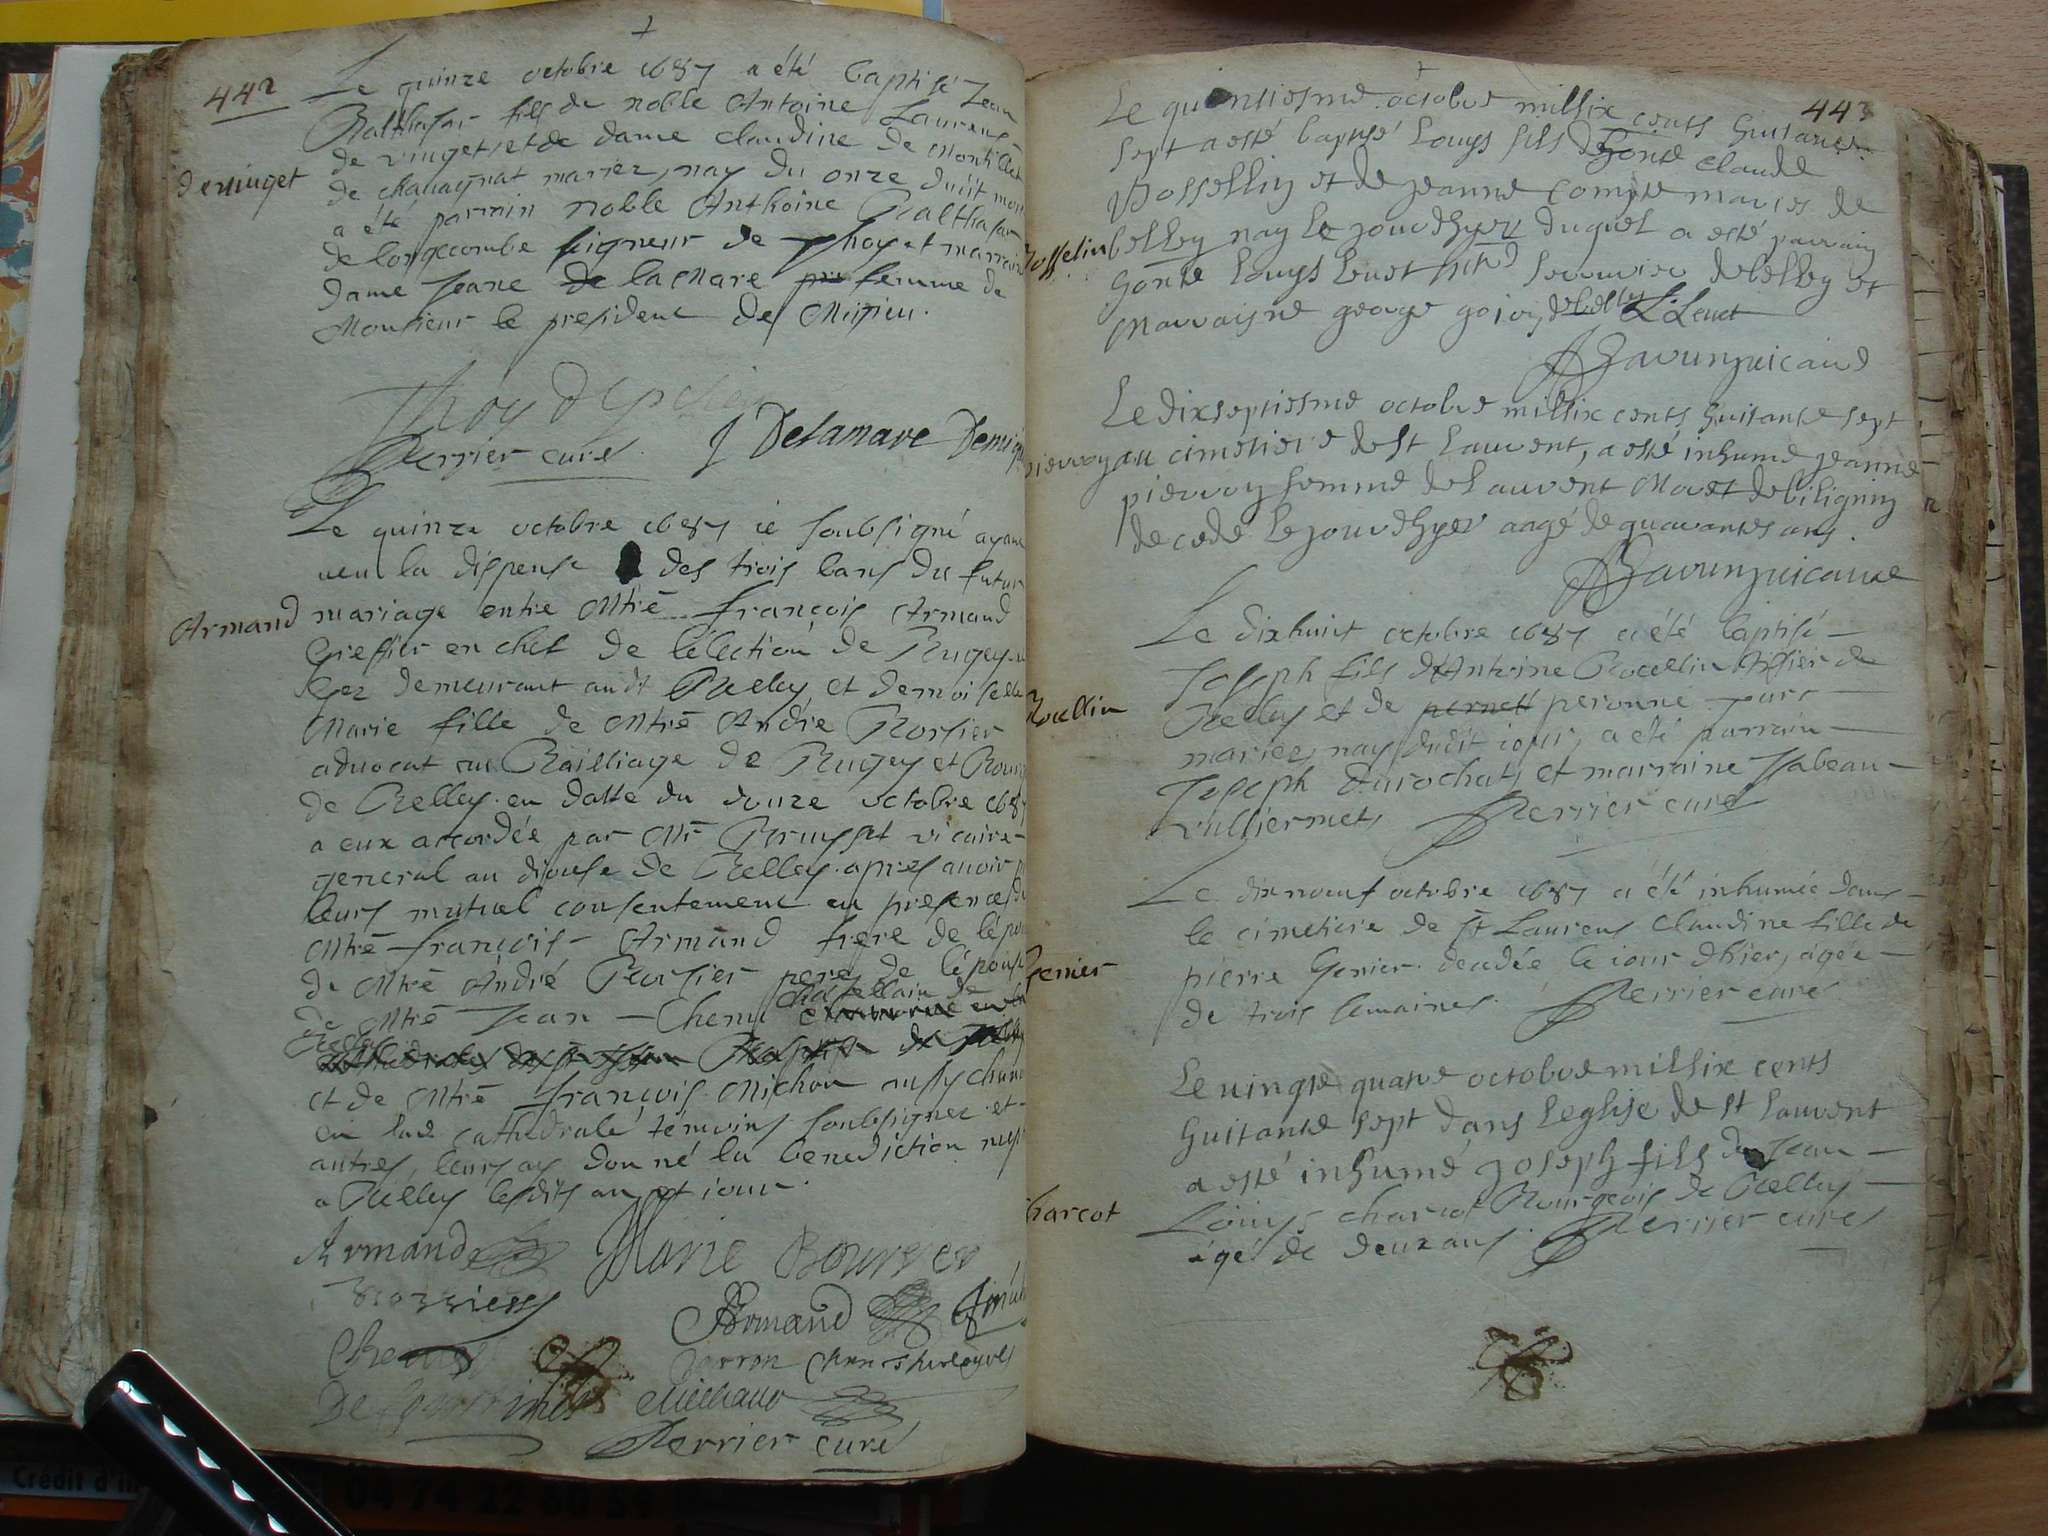 442
Le quinze octobre 1687 a été baptisé Jean
Balthasar fils de noble Antoine Laurens
de vinget et de dame Claudine de Montillet
de chauagnat mariez, nay du onze dudit mois
deuinget
a été parrain noble Anthoine Balthasar
de longecombe seigneur de Thoy et marraine
dame Jeane de la Mare femme de
Monsieur le president de Misieu.
Perrier curé
J Delamare Demi
Le quinze octobre 1687 ie soubsigné ayant
ueu la dispense des trois bans du futur
Armand
mariage entre Mtre françois Armand
Greffier en chef de l'élection de Bugey
Gez demeurant audt Belley et demoiselle
Marie fille de Mtre André Borsier
aduocat au Bailliage de Bugey et Bour
de Belley en datte du douze octobre 1687
a eux accordée par Mre Bruyset vicaire
general au diocese de Belley apres auoir
leurs mutuel consentement en presence de
Mtre françois Armand frere de l'épou
de Mtre André Borsier pere de l'épouse
chatellain de
de Mtre Jean Chem
Belley
et de Mtre françois Michou aussy
en lad cathedrale témoins soubsignez et
autres, leurs ay donné la benediction nup
a Belley lesdits an et iour.
Armand
Marie Boursier
Armand
Perrier curé
443
Le quinsiesme octobre millsix cents huitante
sept a esté baptisé Louys fils d'honte Claude
Josselin
Bosselliy et de jeanne Compte maries de
belley nay le jour dhyer duquel a esté parrain
honte Louys Leuet serrurier de belley et
Marraisne george goioy de belley L. Leuet
Le dixseptiesme octobre millsix cents huitante sept
pierroy
au cimetiere de St Laurent, a esté inhumé jeanne
pierroy femme de Laurent Moret de biligniy
decedé le jour dhyer aagé de quarantes ans.
Le dixhuit octobre 1687 a été baptisé
Joseph fils d'Antoine Rocellin
Rocellin
Belley et de peronne
mariez, nay dudit iour, a été parrain
Joseph Durochat, et marraine Isabeau
vulliermet, Perrier curé
Le dixneuf octobre 1687 a été inhumée dans
le cimetiere de St Laurens Claudine fille de
Genier
pierre Genier decedée le iour dhier, agée
de trois semaines. Perrier curé
Le uingte quatre octobre millsix cents
huitante sept dans leglise de St Laurent
a esté inhumé joseph fils de Jean
Charcot
Louys Charcot Bourgeois de Belley
agé de deux ans. Perrier curé
Crédit d'im
04 74 22 80 59